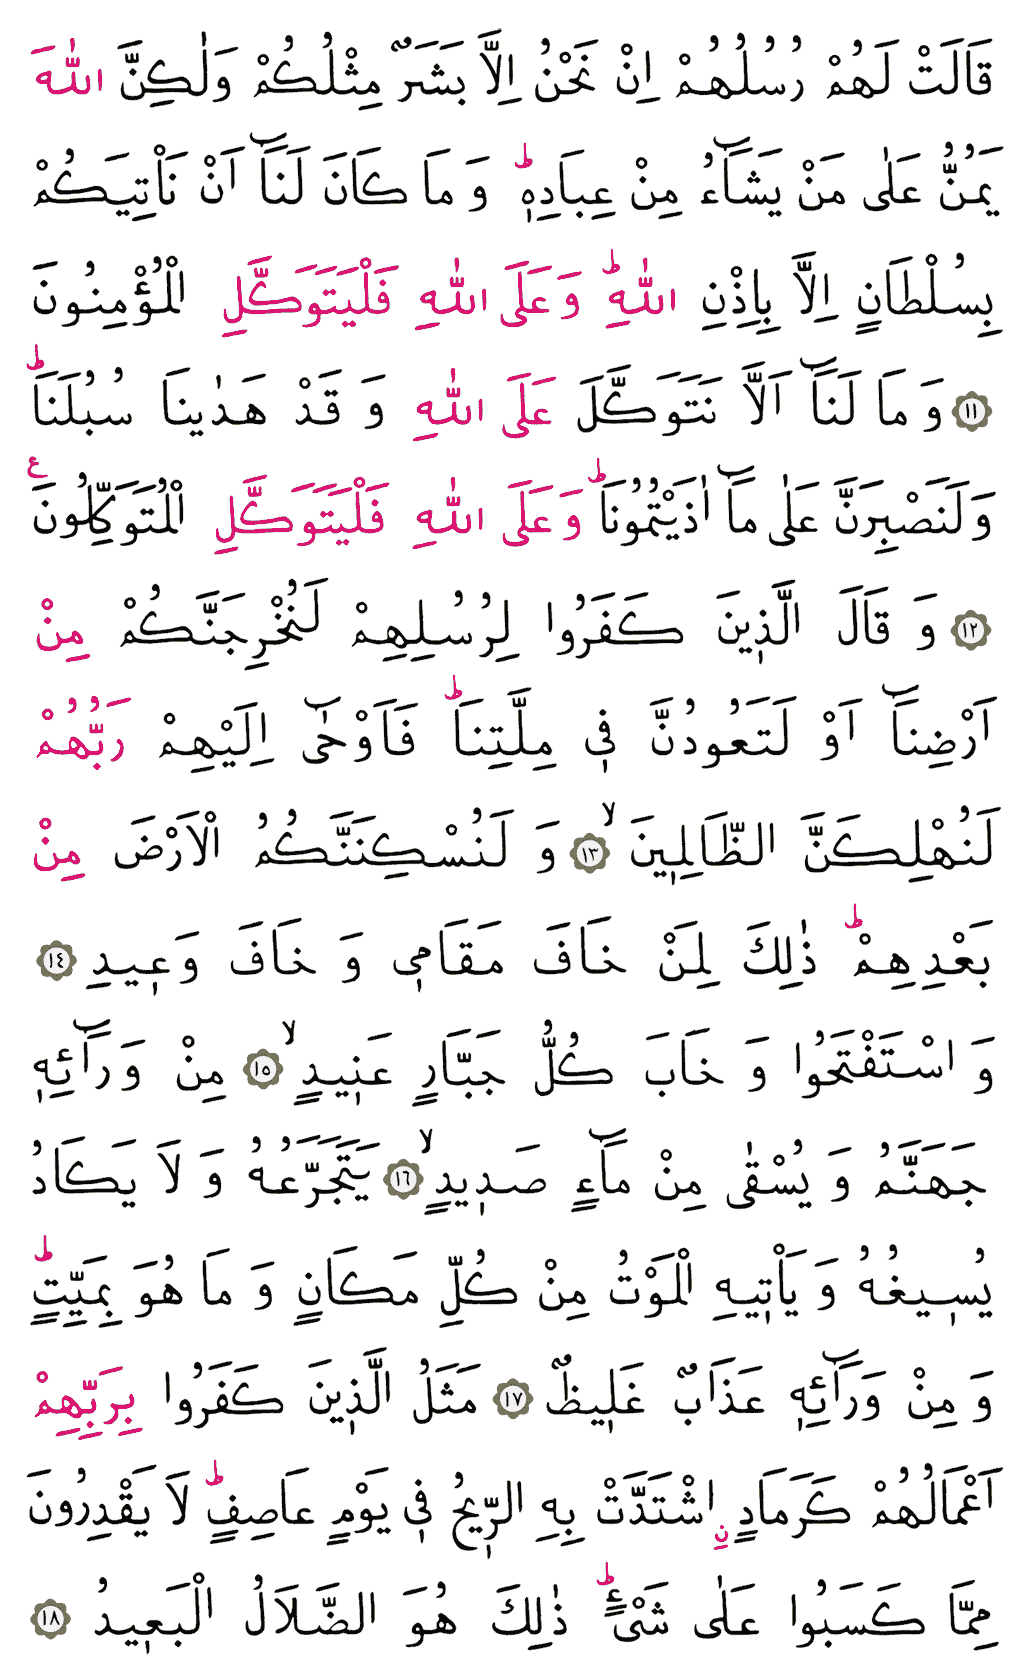 قَالَتْ لَهُمْ رُسُلُهُمْ اِنْ نَحْنُ اِلَّا بَشَرٌ مِثْلُكُمْ وَلٰكِنَّ اللّٰهَ
يَمُنُّ عَلٰى مَنْ يَشَٓاءُ مِنْ عِبَادِهٖؕ وَ مَا كَانَ لَنَٓا اَنْ نَاْتِيَكُمْ
بِسُلْطَانٍ اِلَّا بِاِذْنِ اللّٰهِؕ وَعَلَى اللّٰهِ فَلْيَتَوَكَّلِ الْمُؤْمِنُونَ
﴿١١﴾ وَ مَا لَنَٓا اَلَّا نَتَوَكَّلَ عَلَى اللّٰهِ وَ قَدْ هَدٰينَا سُبُلَنَاؕ
وَلَنَصْبِرَنَّ عَلٰى مَٓا اٰذَيْتُمُونَاؕ وَعَلَى اللّٰهِ فَلْيَتَوَكَّلِ الْمُتَوَكِّلُونَ ع
﴿١٢﴾ وَ قَالَ الَّذٖينَ كَفَرُوا لِرُسُلِهِمْ لَنُخْرِجَنَّكُمْ مِنْ
اَرْضِنَٓا اَوْ لَتَعُودُنَّ فٖي مِلَّتِنَاؕ فَاَوْحٰٓى اِلَيْهِمْ رَبُّهُمْ
لَنُهْلِكَنَّ الظَّالِمٖينَۙ ﴿١٣﴾ وَ لَنُسْكِنَنَّكُمُ الْاَرْضَ مِنْ
بَعْدِهِمْؕ ذٰلِكَ لِمَنْ خَافَ مَقَامٖي وَ خَافَ وَعٖيدِ ﴿١٤﴾
وَ اسْتَفْتَحُوا وَ خَابَ كُلُّ جَبَّارٍ عَنٖيدٍۙ ﴿١٥﴾ مِنْ وَرَٓائِهٖ
جَهَنَّمُ وَ يُسْقٰى مِنْ مَٓاءٍ صَدٖيدٍۙ ﴿١٦﴾ يَتَجَرَّعُهُ وَ لَا يَكَادُ
يُسٖيغُهُ وَ يَاْتٖيهِ الْمَوْتُ مِنْ كُلِّ مَكَانٍ وَ مَا هُوَ بِمَيِّتٍؕ
وَ مِنْ وَرَٓائِهٖ عَذَابٌ غَلٖيظٌ ﴿١٧﴾ مَثَلُ الَّذٖينَ كَفَرُوا بِرَبِّهِمْ
اَعْمَالُهُمْ كَرَمَادٍ ن اشْتَدَّتْ بِهِ الرّٖيحُ فٖي يَوْمٍ عَاصِفٍؕ لَا يَقْدِرُونَ
مِمَّا كَسَبُوا عَلٰى شَیْءٍؕ ذٰلِكَ هُوَ الضَّلَالُ الْبَعٖيدُ ﴿١٨﴾